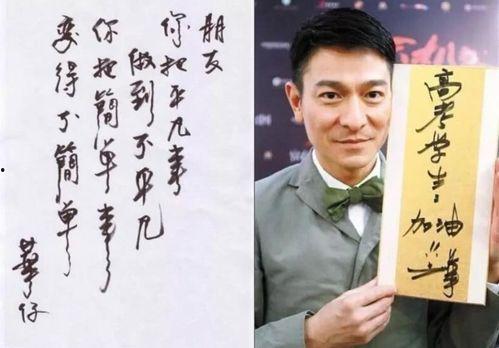 朋友
你把平凡事
做到不平凡
你把簡单事
变得不簡单
華仔
高考学生:
加油!!
華